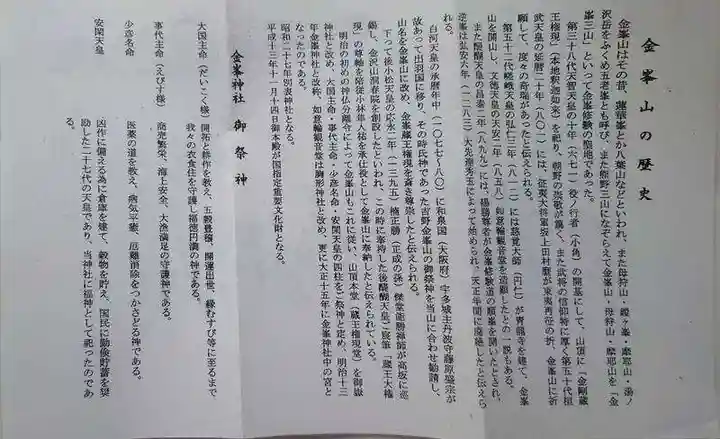 金峯山の歴史
金峯山はその昔、蓮華峯とか八葉山などといわれ、また母狩山・鎧ヶ峯・摩耶山・湯ノ
沢岳をふくめ五老峯とも呼び、また熊野三山になぞらえて金峯山・母狩山・摩耶山を「金
峯三山」といって金峯修験の聖地であった。
第三十八代天智天皇の十年(六七一)役ノ行者(小角)の開基にして、山頂に「金剛蔵
王権現」(本地釈迦如来)を祀り、朝野の崇敬が篤く、また武将の信仰特に厚く第五十代桓
武天皇の延暦二十年(八〇一)には、征東大将軍坂上田村麿が東夷再征の折、金峯山に祈
願して、度々の奇瑞があったと伝えられる。
第五十二代嵯峨天皇の弘仁三年(八一二)には慈覚大師(円仁)が青龍寺を建て、金峯
山を開山し、文徳天皇の天安二年(八五八)如意輪観音堂を造顕したとの一説もある。
また醍醐天皇の昌泰二年(八九九)には、楊勝尊者が金峯修験道の順峯を開いたとされ、
逆峯は弘安六年(一二八三)大先達秀玉によって始められ、天正年間に復絶したと伝えら
れる。
白河天皇の承暦年中(一〇七七~八〇)に和泉国(大阪府)宇多城主丹波守藤原盛宗が
故あって出羽国に移り、その時氏神であった吉野金峯山の御祭神を当山に合わせ勧請し、
山名を金峯山に改め、金峯蔵王権現を斎き尊崇したと伝えられる。
下って後小松天皇の応永二年(一三九五)楠正勝(正成の孫)傑堂能勝禅師が高坂に巡
錫し、金沢山洞春院を創設したといわれ、この時に奉持した後醍醐天皇ご宸筆「蔵王大権
現」の尊軸を陪従小林隼人祐を承仕役として金峯山に奉納したと伝えられている。
明治の初めの神仏分離令によって金峯山もこれに従い、山頂本堂(蔵王権現堂)を御嶽
神社と改め、大国主命・事代主命・少彦名命・安閑天皇の四柱をご祭神と定め、明治十三
年金峯神社と改称、如意輪観音堂は胸形神社と改め、更に大正十五年に金峯神社中の宮と
なったのである。
昭和二十七年別表神社となる。
平成十三年十一月十四日御本殿が国指定重要文化財となる。
金峯神社 御祭神
大国主命(だいこく様) 開拓と耕作を教え、五穀豊穣、開運出世、縁むすび等に至るまで
我々の衣食住を守護し福徳円満の神である。
事代主命(えびす様) 商売繁栄、海上安全、大漁満足の守護神である。
少彦名命 医薬の道を教え、病気平癒、厄難消除をつかさどる神である。
安閑天皇 凶作に備える為に倉庫を建て、穀物を貯え、国民に勤倹貯蓄を奨
励した二十七代の天皇であり、当神社に福神として祀ったのであ
る。